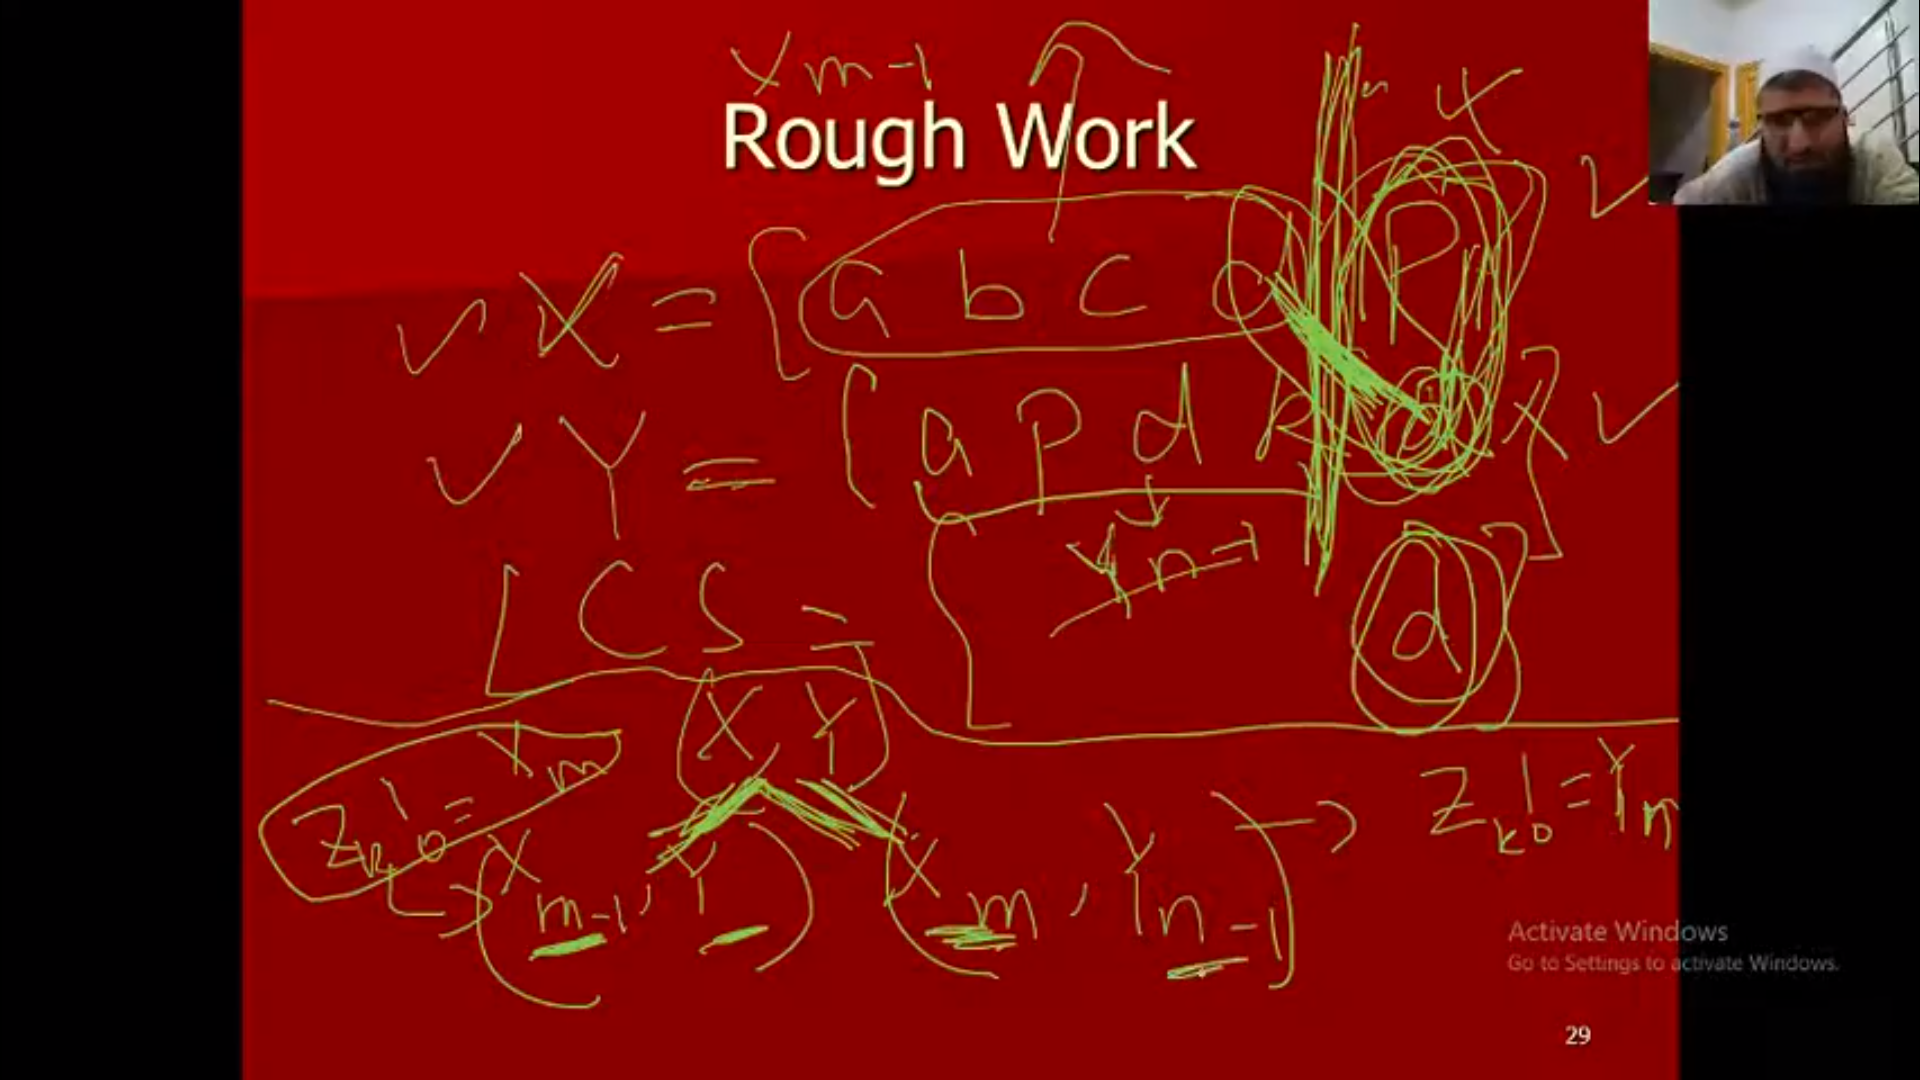 Xm-1
Rough Work
X = [ a b c d P
Y = [ a p d R d ]
Yn-1
LCS = [ d ]
X Y
Zk != Xm
Zk != Yn
(Xm-1, Y) (Xm, Yn-1)
Activate Windows
Go to Settings to activate Windows.
29